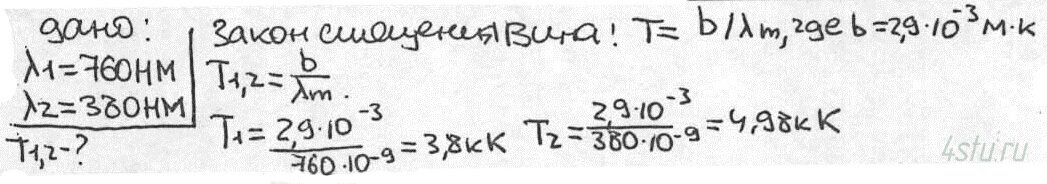 дано:
λ1=760нм
λ2=380нм
T1,2-?
Закон смещения Вина! T= b/λm, где b=2,9·10^-3 м·К
T1,2= b/λm.
T1= 2,9·10^-3/760·10^-9 =3,8кК T2= 2,9·10^-3/380·10^-9 =4,98кК
4stu.ru